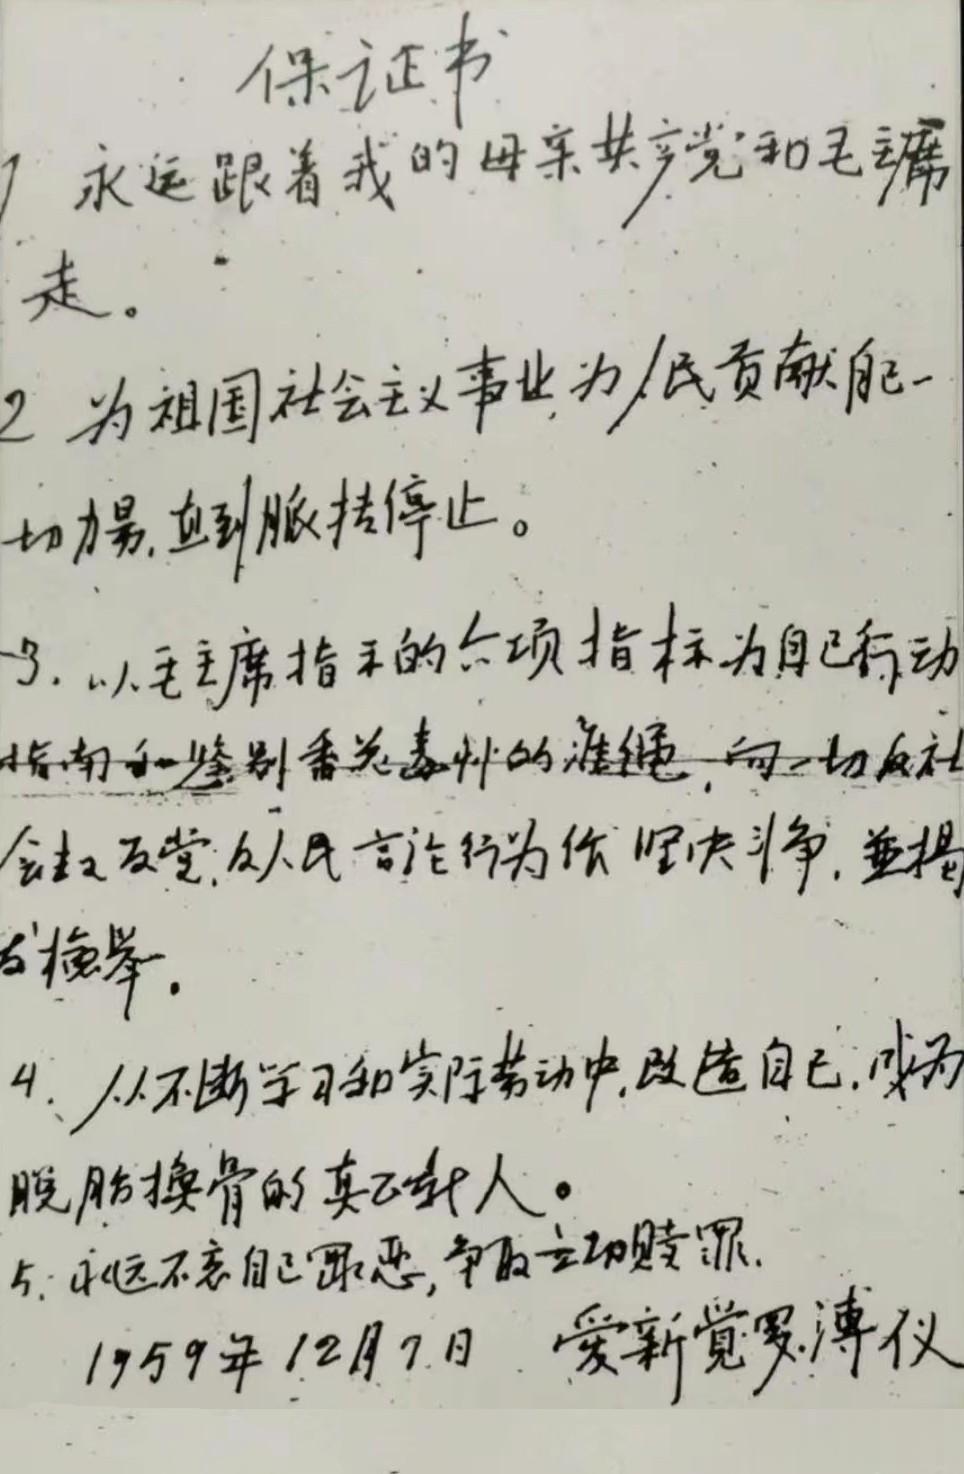 保证书
1 永远跟着我的母亲共产党和毛主席
走。
2 为祖国社会主义事业,为人民贡献自己一
切力量,直到脉搏停止。
3. 以毛主席指示的六项指标为自己行动
指南和鉴别香花毒草的准绳,向一切反社
会主义反党,反人民言论行为作坚决斗争,並揭
发检举.
4. 从不断学习和实际劳动中,改造自己,成为
脱胎换骨的真正新人。
5. 永远不忘自己罪恶,争取立功赎罪.
1959年12月7日 爱新覺罗.溥仪